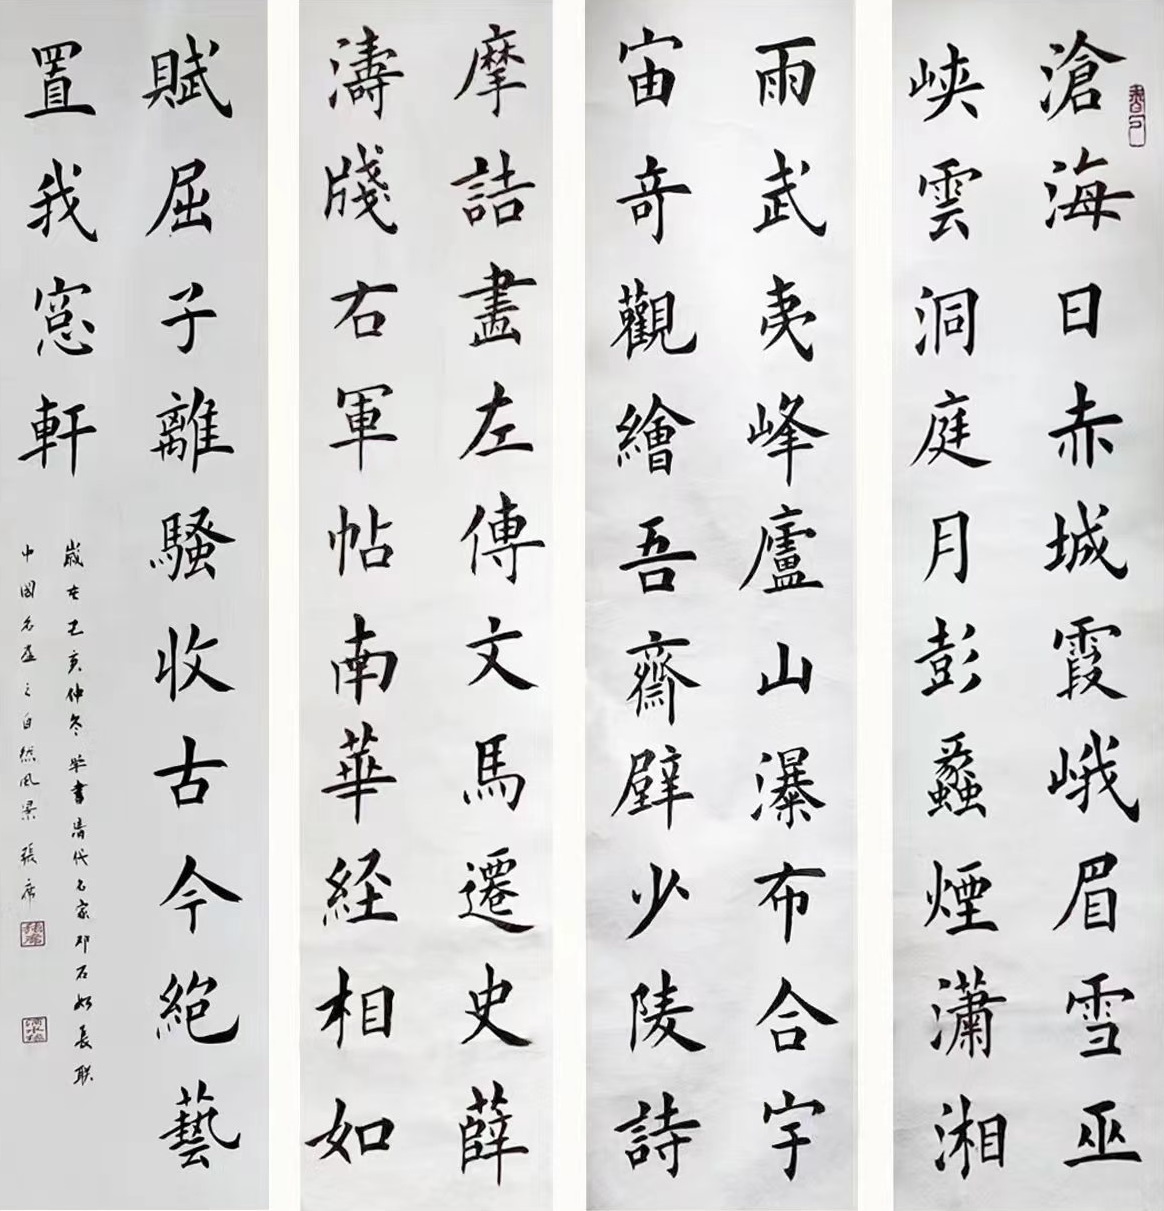 滄海日赤城霞峨眉雪巫
峽雲洞庭月彭蠡煙瀟湘
雨武夷峰廬山瀑布合宇
宙奇觀繪吾齋壁少陵詩
摩詰畫左傳文馬遷史薛
濤牋右軍帖南華経相如
賦屈子離騷收古今絕藝
置我窓軒
歲在己亥仲冬畢書清代名家邓石如長联
中國名画之自然风景張席